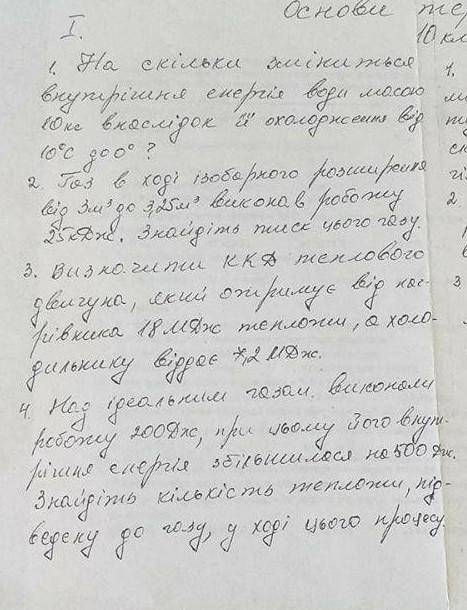 Основи те
I.
10 кл
1. На скільки зміниться
внутрішня енергія води масою
10кг внаслідок її охолодження від
10°C до 0°?
2. Газ в ході ізобарного розширення
від 3м³ до 3,25м³ виконав роботу
25кДж. Знайдіть тиск цього газу.
3. Визначити ККД теплового
двигуна, який отримує від наг-
рівника 18 МДж теплоти, а холо-
дильнику віддає 7,2 МДж.
4. Над ідеальним газом виконали
роботу 200Дж, при цьому його внут-
рішня енергія збільшилася на 500 Дж.
Знайдіть кількість теплоти, під-
ведену до газу, у ході цього процесу.
1.
2.
3